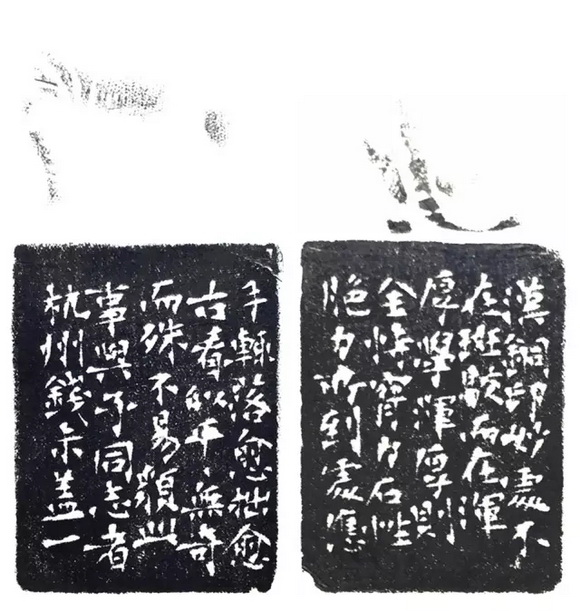 漢銅印妙處不
在斑駁而在渾
厚學渾厚則
全恃腕力石性
脃力所到處應
手輒落愈拙愈
古看似平〻無奇
而殊不易䫉此
事與予同志者
杭州錢尗蓋一